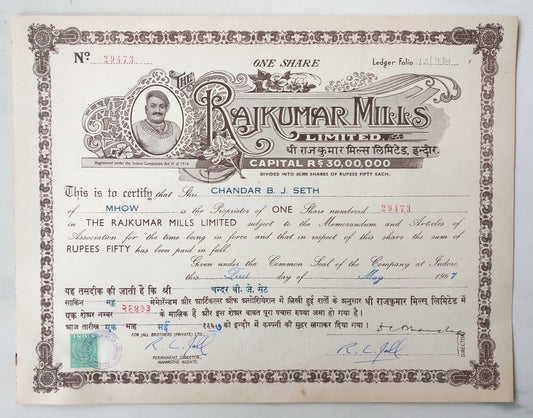 Nº 29473
ONE SHARE
Ledger Folio
THE
RAJKUMAR MILLS
LIMITED.
धी राजकुमार मिल्स लिमिटेड, इन्दौर.
CAPITAL RS 30,00,000
DIVIDED INTO 60,000 SHARES OF RUPEES FIFTY EACH.
Registered under the Indore Companies Act II of 1914.
This is to certify that Shri CHANDAR B. J. SETH
of MHOW is the Proprietor of ONE Share numbered 29473
in THE RAJKUMAR MILLS LIMITED subject to the Memorandum and Articles of
Association for the time being in force and that in respect of this share the sum of
RUPEES FIFTY has been paid in full.
Given under the Common Seal of the Company at Indore
this First day of May 1967
यह तसदीक की जाती है कि श्री चन्दर बी. जे. सेठ
साकिन महू मेमोरेन्डम और आर्टिकल्स ऑफ असोसिएशन में लिखी हुई शर्तों के अनुसार धी राजकुमार मिल्स लिमिटेड में
एक शेअर नम्बर २९४७३ के मालिक हैं और इस शेअर बाबत पूरा पचास रुपया जमा हो गया है।
आज तारीख एक माह मई १९६७ को इन्दौर में कंपनी की मुहर लगाकर दिया गया।
FOR JALL BROTHERS (PRIVATE) LTD.
R. C. Jall
PERMANENT DIRECTOR,
MANAGING AGENTS.
R. C. Jall
DIRECTORS
INDIA